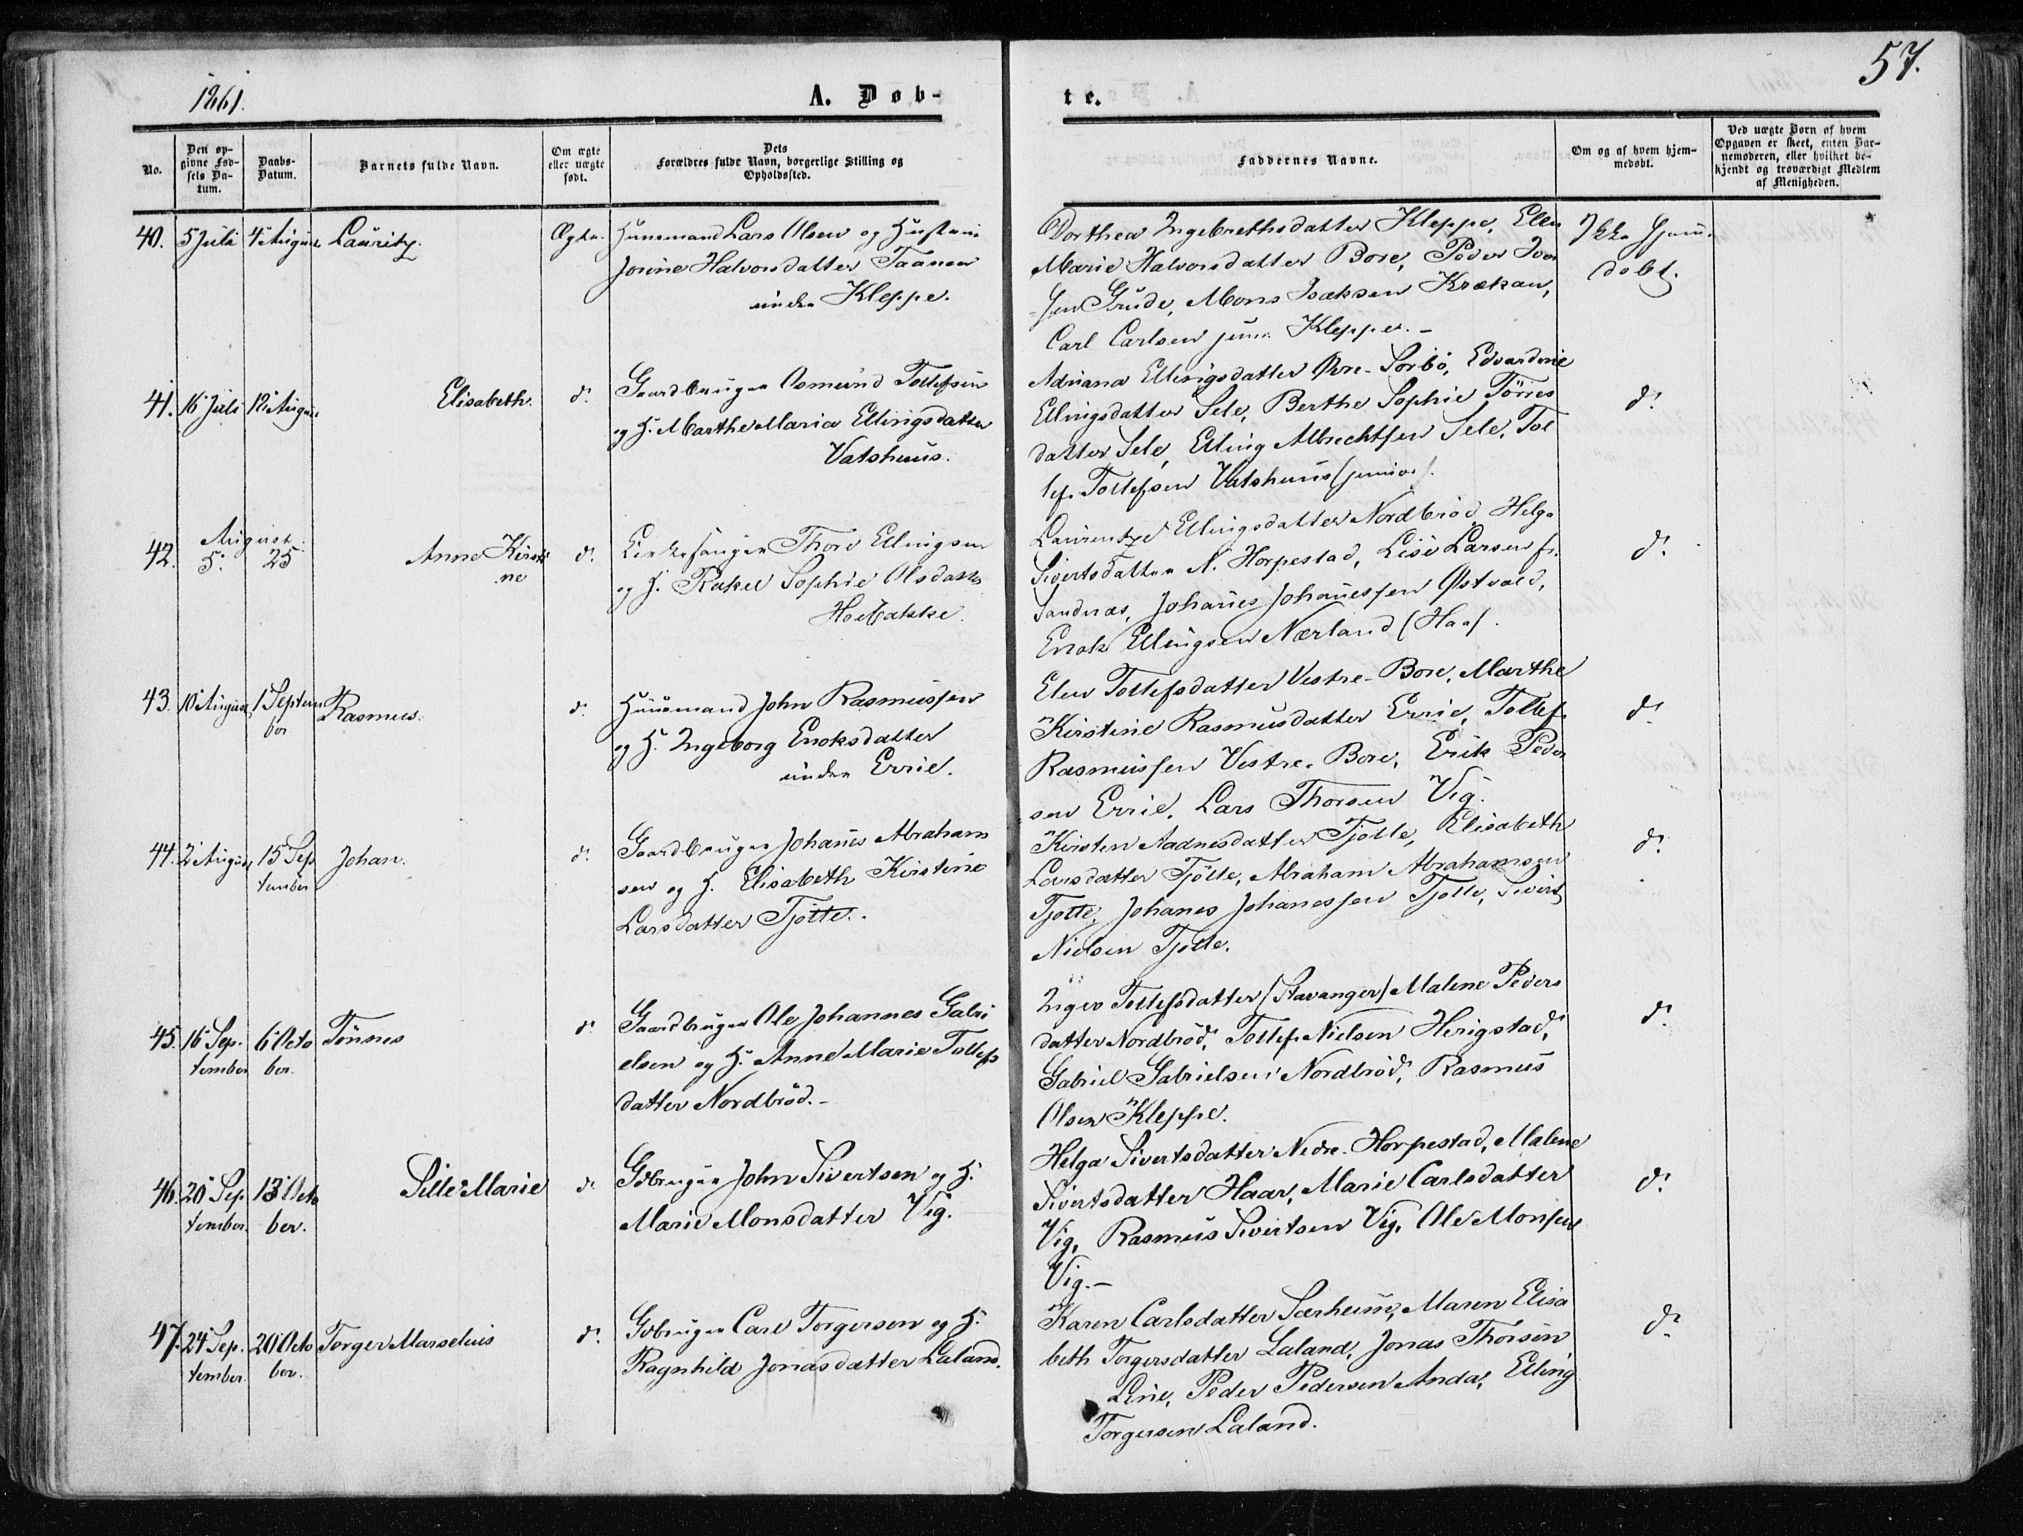 1861.
A. Døb-
te.
57.
No.
Den op-
givne Fød-
sels Da-
tum.
Daabs-
Datum.
Barnets fulde Navn.
Om ægte
eller uægte
født.
Dets
Forældres fulde Navn, borgerlige Stilling og
Opholdssted.
Faddernes Navne.
Om og af hvem hjem-
medøbt.
Ved uægte Børn af hvem
Opgaven er skeet, enten Bar-
nemoderen, eller hvilket be-
kjendt og troværdigt Medlem
af Menigheden.
40. 5 Juli 4 August Lauritz. Ægte. Huusmand Lars Olsen og Hustru
Jorine Halvorsdatter Taanen
under Kleppe.
Dorthea Ingebrethsdatter Kleppe, Elen
Marie Halvorsdatter Bore, Peder Iver
sen Grude, Mons Isaksen Krækan,
Carl Carlsen jun. Kleppe. –
Ikke hjem-
døbt.
41. 16 Juli 12 August Elisabeth. do. Gaardbruger Osmund Tollefsen
og H. Marthe Maria Ellingsdatter
Vatshuus.
Adriana Ellingsdatter Øvre-Sørbø, Edvardine
Ellingsdatter Sele, Berthe Sophie Tørres
datter Sele, Elling Albrechtsen Sele, Tol
lef Tollefsen Vatshuus (junior).
do.
42. August
5. 25 Anne Kirsti
ne do. Kirkesanger Thore Ellingsen
og H. Rakel Sophie Olsdatter
Hoibakke.
Laurentze Ellingsdatter Nordbrød, Helga
Sivertsdatter N. Horpestad, Lise Larsen fr.
Sandnæs, Johanes Johanessen Østvold,
Enok Ellingsen Nærland (Haa).
do.
43. 10 August 1 Septem
ber Rasmus. do. Huusmand John Rasmussen
og H. Ingeborg Enoksdatter
under Errie.
Elen Tollefsdatter Vestre-Bore, Marthe
Kirstine Rasmusdatter Errie, Tollef
Rasmussen Vestre-Bore, Erik Peder
sen Errie, Lars Thorsen Vig.
do.
44. 2 August 15 Sep
tember Johan. do. Gaardbruger Johanes Abraham
sen og H. Elisabeth Kirstine
Larsdatter Tjøtte.
Kirsten Aadnesdatter Tjøtte, Elisabeth
Larsdatter Tjøtte, Abraham Abrahamsen
Tjøtte, Johanes Johanessen Tjøtte, Sivert
Nielsen Tjøtte.
do.
45. 16 Sep.
tember 6 Octo
ber. Tønnes do. Gaardbruger Ole Johannes Gabri
elsen og H. Anne Marie Tollefs
datter Nordbrød. –
Inger Tollefsdatter (Stavanger) Malene Peders
datter Nordbrød, Tollef Nielsen Herigstad,
Gabriel Gabrielsen Nordbrød, Rasmus
Olsen Kleppe.
do.
46. 20 Sep.
tember. 13 Octo
ber. Sille Marie do. Gbruger John Sivertsen og H.
Marie Monsdatter Vig.
Helga Sivertsdatter Nedre-Horpestad, Malene
Sivertsdatter Haar, Marie Carlsdatter
Vig, Rasmus Sivertsen Vig, Ole Monsen
Vig. –
do.
47. 24 Sep.
tember. 20 Octo
ber. Torger Marselius do. Gbruger Carl Torgersen og H.
Ragnhild Jonasdatter Laland.
Karen Carlsdatter Særheim, Maren Elisa
beth Torgersdatter Laland, Jonas Thorsen
Line, Peder Pedersen Anda, Elling
Torgersen Laland.
do.